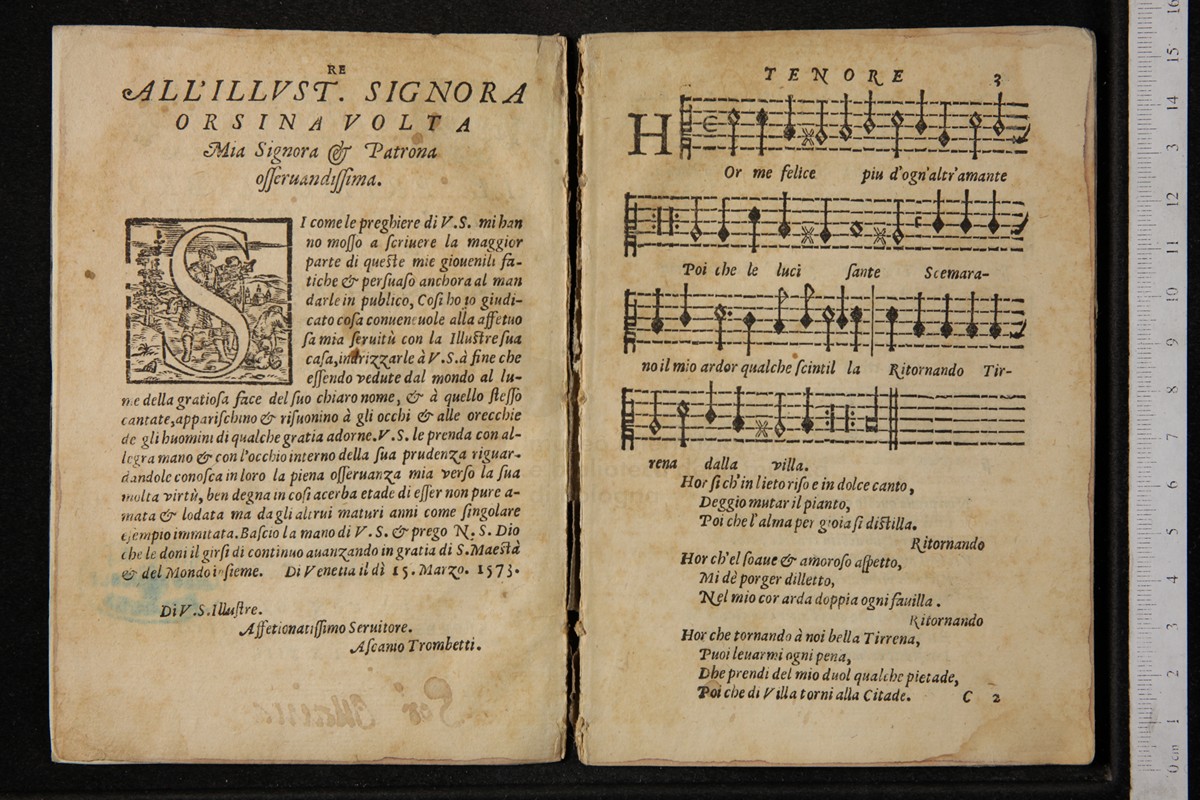 RE
ALL'ILLVST. SIGNORA
ORSINA VOLTA
Mia Signora & Patrona
osseruandissima.
SI come le preghiere di V.S. mi han
no mosso a scriuere la maggior
parte di queste mie giouenili fa-
tiche & persuaso anchora al man
darle in publico, Cosi ho io giudi-
cato cosa conueneuole alla affetuo
sa mia seruitù con la Illustre sua
casa, indrizzarle à V.S. à fine che
essendo vedute dal mondo al lu-
me della gratiosa face del suo chiaro nome, & à quello stesso
cantate, apparischino & risuonino à gli occhi & alle orecchie
de gli huomini di qualche gratia adorne. V.S. le prenda con al-
legra mano & con l'occhio interno della sua prudenza riguar-
dandole conosca in loro la piena osseruanza mia verso la sua
molta virtù, ben degna in cosi acerba etade di esser non pure a-
mata & lodata ma dagli altrui maturi anni come singolare
esempio immitata. Bascio la mano di V.S. & prego N. S. Dio
che le doni il girsi di continuo auanzando in gratia di S. Maestà
& del Mondo insieme. Di Venetia il dì 15. Marzo. 1573.
Di V.S. Illustre.
Affetionatissimo Seruitore.
Ascanio Trombetti.
TENORE 3
HOr me felice piu d'ogn'altr'amante
Poi che le luci sante Scemara-
no il mio ardor qualche scintil la Ritornando Tir-
rena dalla villa.
Hor si ch'in lieto riso e in dolce canto,
Deggio mutar il pianto,
Poi che l'alma per gioia si distilla.
Ritornando
Hor ch'el soaue & amoroso aspetto,
Mi dè porger dilletto,
Nel mio cor arda doppia ogni fauilla.
Ritornando
Hor che tornando à noi bella Tirrena,
Puoi leuarmi ogni pena,
Dhe prendi del mio duol qualche pietade,
Poi che di Villa torni alla Citade. C 2
0 cm 1 2 3 4 5 6 7 8 9 10 11 12 13 14 15 16